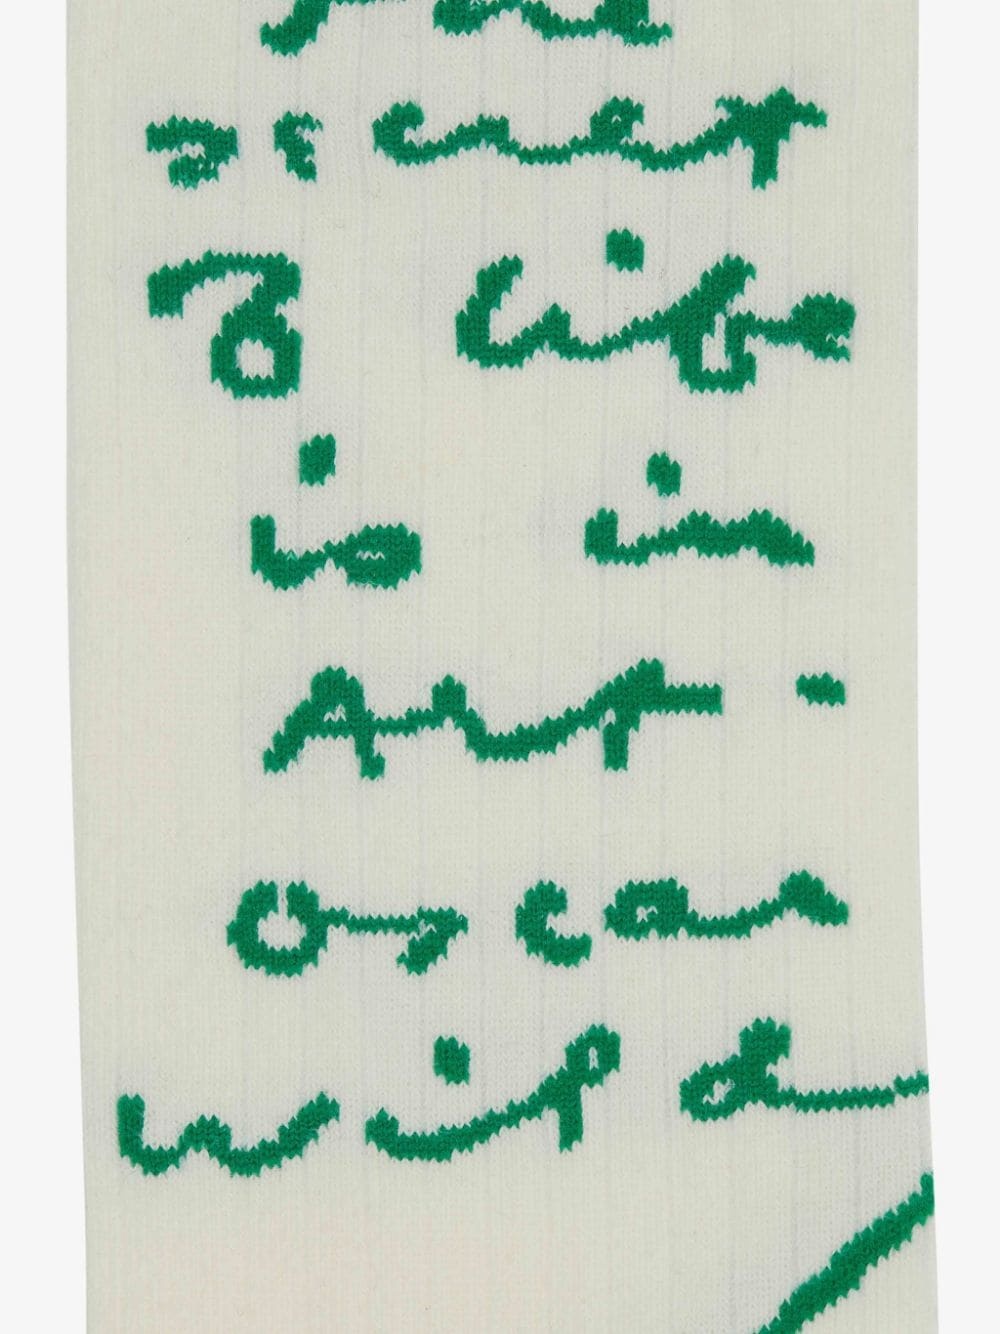 the
secret
of life
is in
Art.
Oscar
Wilde